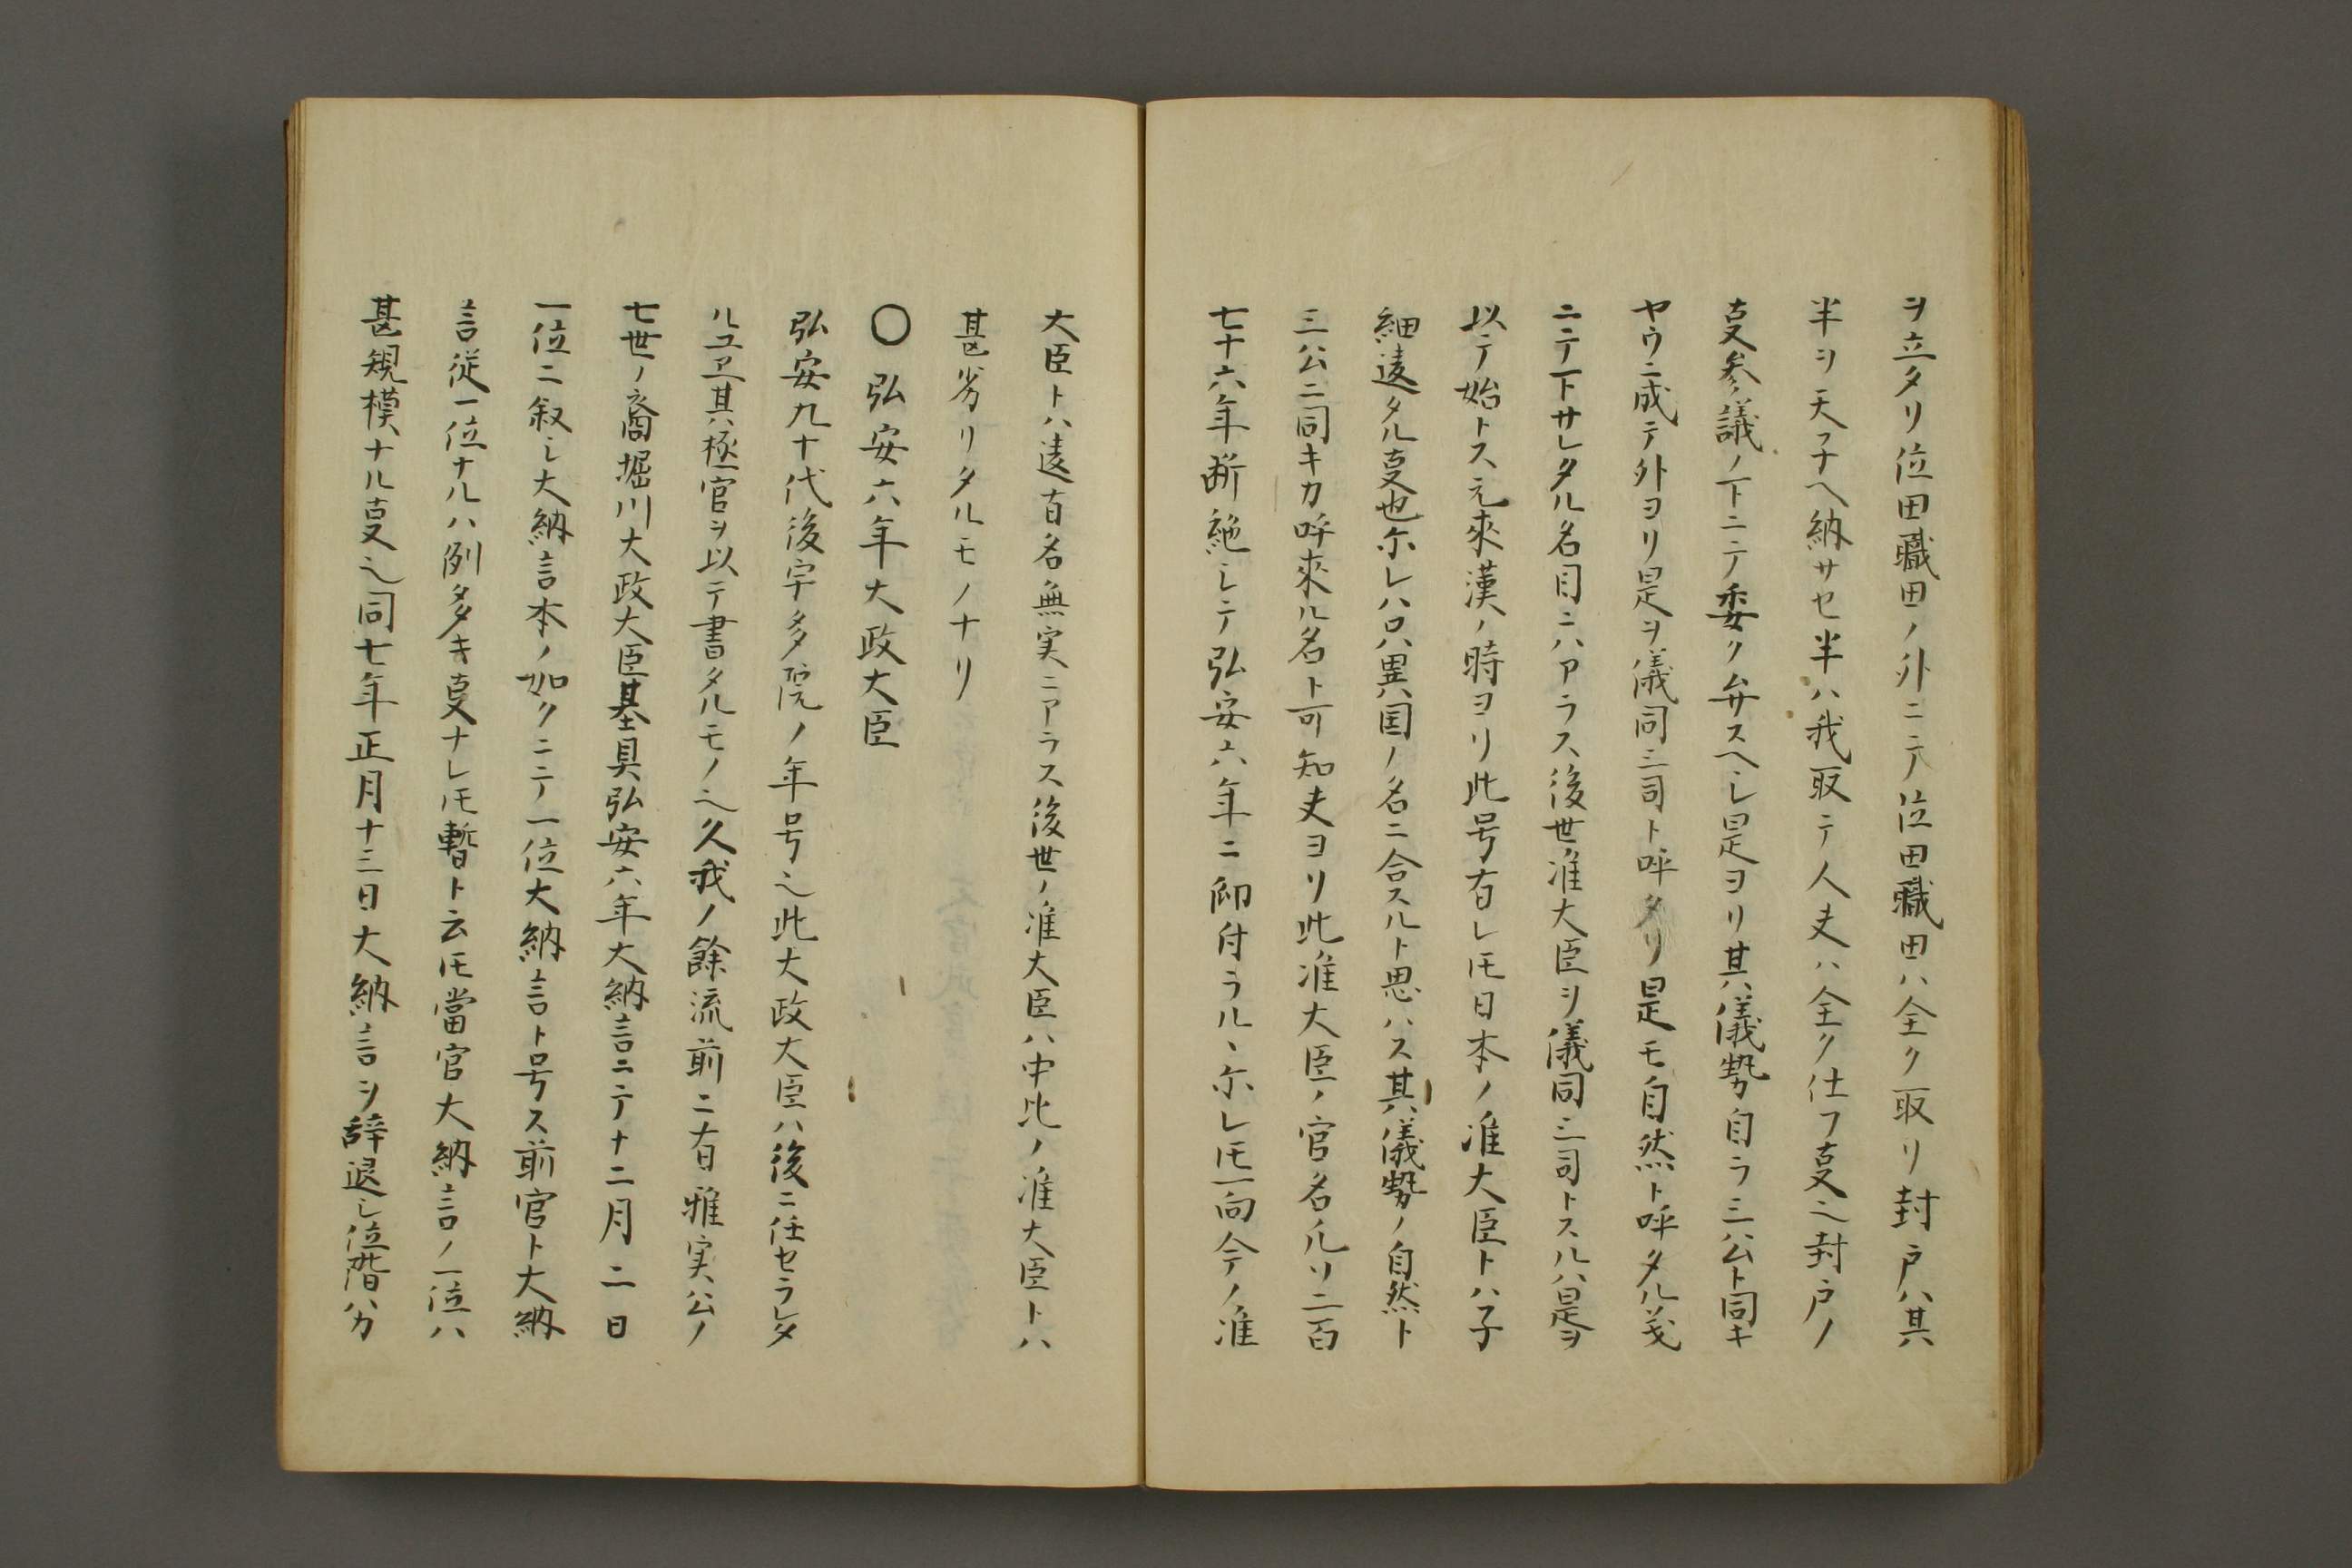 ヲ立タリ位田職田ノ外ニテ位田職田ハ全ク取リ封戸ハ其
半ヲ天子ヘ納サセ半ハ我取テ人夫ハ全ク仕フ叓也封戸ノ
叓参議ノ下ニテ委ク弁スヘシ是ヨリ其儀勢自ラ三公ト同キ
ヤウニ成テ外ヨリ是ヲ儀同三司ト呼タリ是モ自然ト呼タル義
ニテ下サレタル名目ニハアラス後世准大臣ヲ儀同三司トスルハ是ヲ
以テ始トス元來漢ノ時ヨリ此号有レ𪜈日本ノ准大臣トハ子
細遠タル叓也尓レハ只異国ノ名ニ合スルト思ハス其儀勢ノ自然ト
三公ニ同キカ呼來ル名ト可知夫ヨリ此准大臣ノ官名凡ソ二百
七十六年断絶シテ弘安六年ニ仰付ラルヽ尓レ𪜈一向今ノ准
大臣トハ遠有名無実ニアラス後世ノ准大臣ハ中比ノ准大臣トハ
甚劣リタルモノナリ
〇弘安六年大政大臣
弘安九十代後宇多院ノ年号也此大政大臣ハ後ニ任セラレタ
ルユヱ其極官ヲ以テ書タルモノ也久我ノ餘流前ニ有雅実公ノ
七世ノ裔堀川大政大臣基具弘安六年大納言ニテ十二月二日
一位ニ叙シ大納言本ノ如クニテ一位大納言ト号ス前官ト大納
言従一位ナルハ例多キ叓ナレ𪜈暫ト云𪜈當官大納言ノ一位ハ
甚規模ナル叓也同七年正月十三日大納言ヲ辞退シ位階ハカ